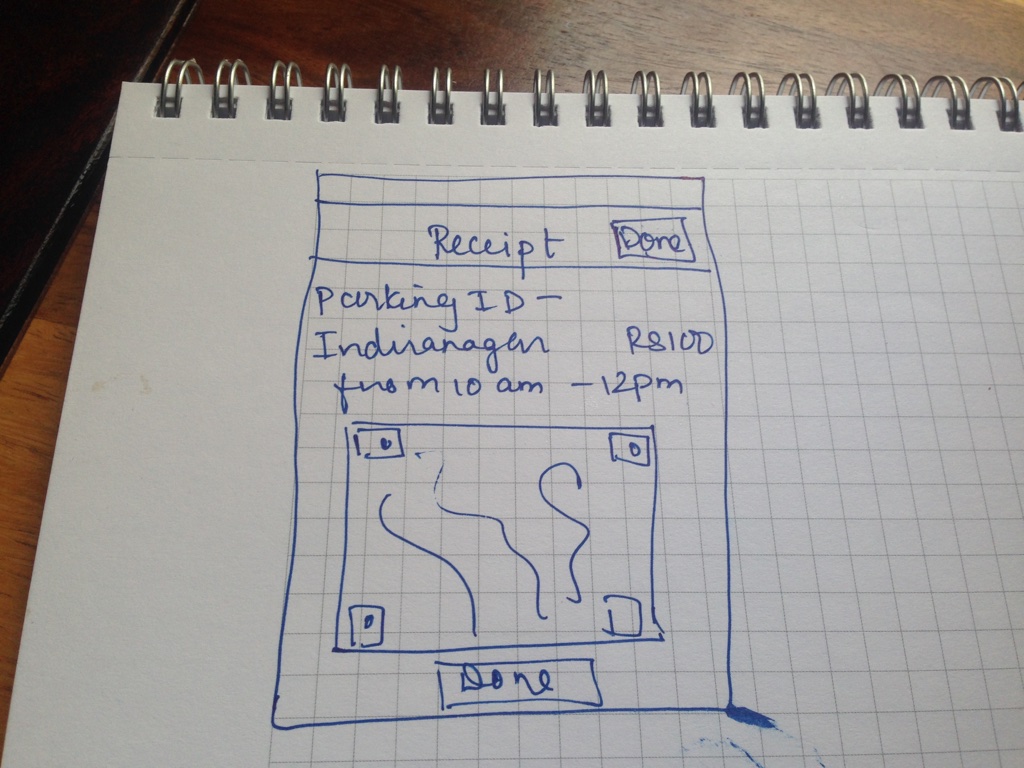 Receipt Done
Parking ID -
Indiranagar RS100
from 10 am - 12pm
Done